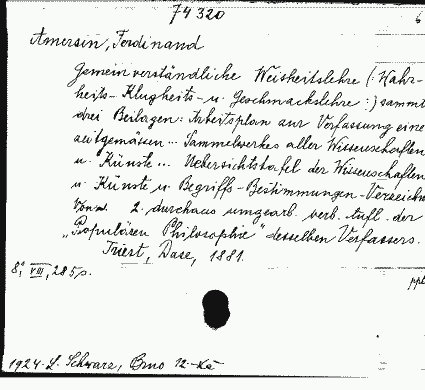 74320
6
Amersin, Ferdinand
Gemeinverständliche Weisheitslehre (: Wahr-
heits- Klugheits- u. Geschmackslehre :) sammt
drei Beilagen: Arbeitsplan zur Verfassung eine
zeitgemäsen... Sammelwerkes aller Wissenschaften
u. Künste... Uebersichtstafel der Wissenschaften
u. Künste u. Begriffs-Bestimmungen-Verzeichn
2. durchaus umgearb. verb. Aufl. der
"Populären Philosophie" desselben Verfassers.
Triest, Dase, 1881.
8°, VIII, 285 s.
ppb
1924. L. Schwarz, Brno 12-Kč